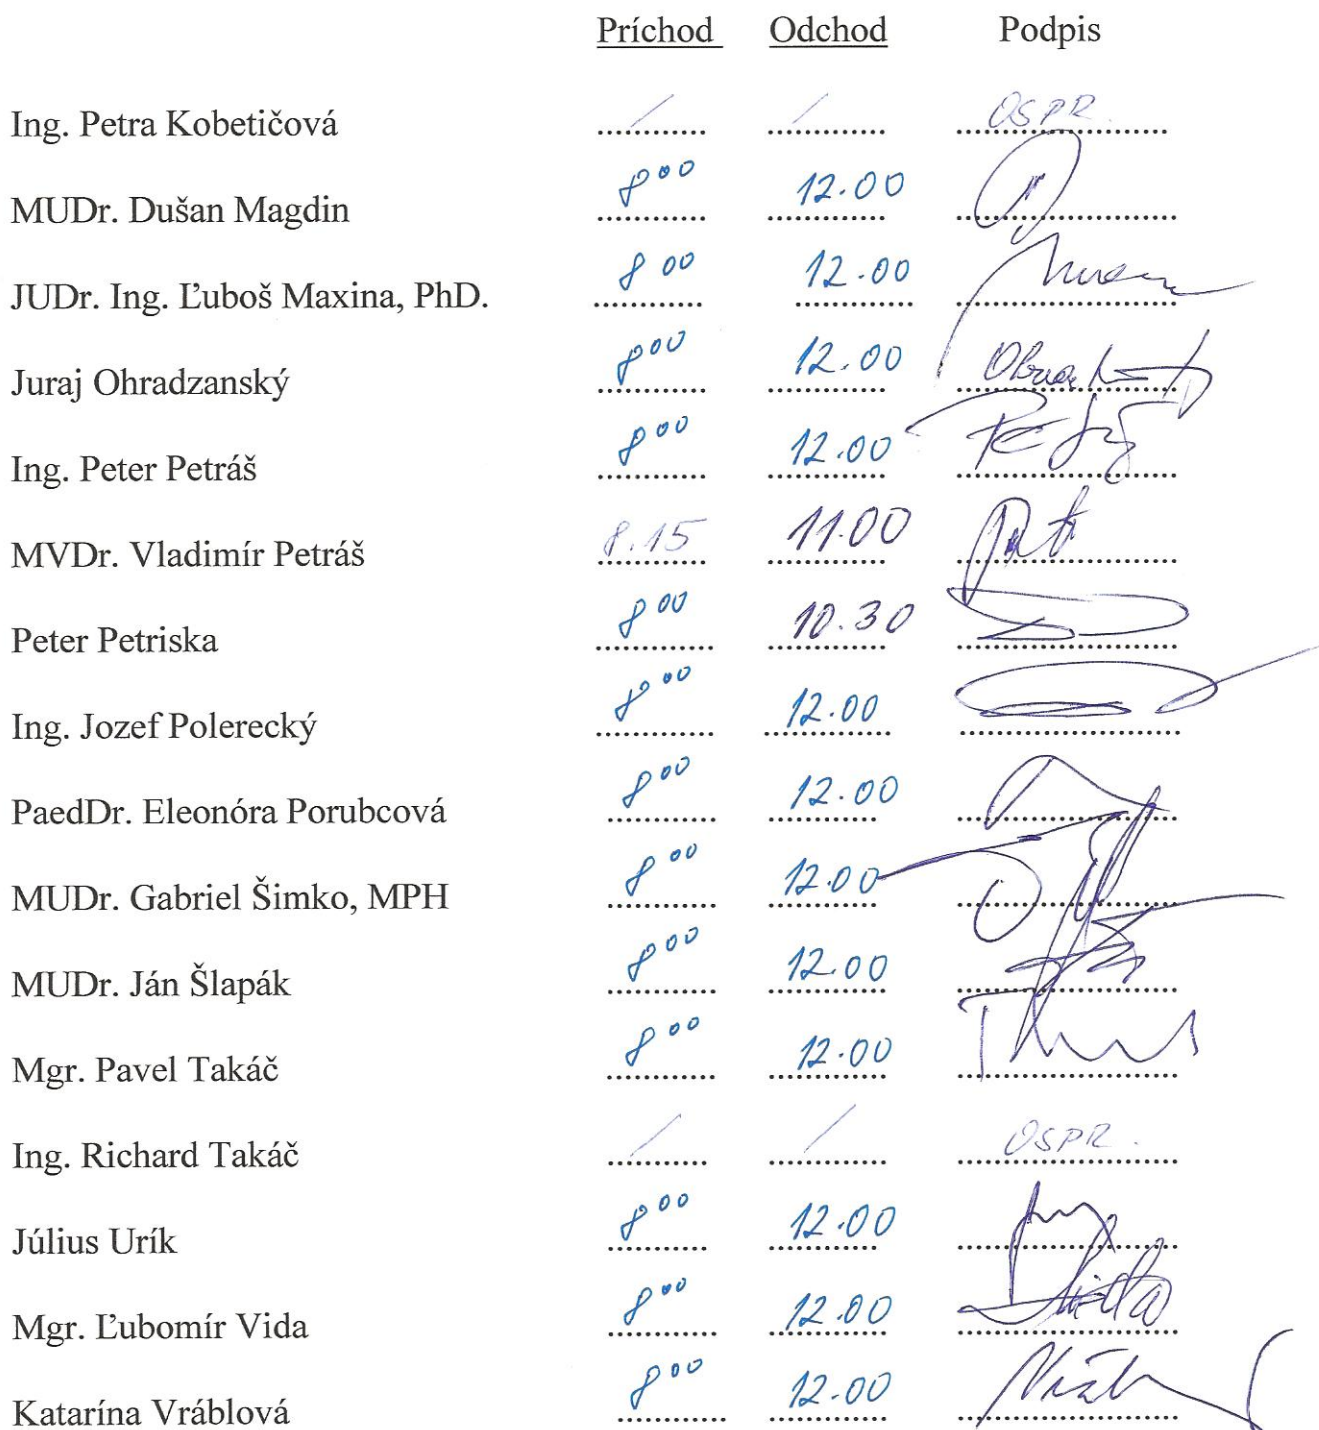 Príchod Odchod Podpis
Ing. Petra Kobetičová / / OSPR.
MUDr. Dušan Magdin 8⁰⁰ 12.00
JUDr. Ing. Ľuboš Maxina, PhD. 8⁰⁰ 12.00
Juraj Ohradzanský 8⁰⁰ 12.00
Ing. Peter Petráš 8⁰⁰ 12.00
MVDr. Vladimír Petráš 8.15 11.00
Peter Petriska 8⁰⁰ 10.30
Ing. Jozef Polerecký 8⁰⁰ 12.00
PaedDr. Eleonóra Porubcová 8⁰⁰ 12.00
MUDr. Gabriel Šimko, MPH 8⁰⁰ 12.00
MUDr. Ján Šlapák 8⁰⁰ 12.00
Mgr. Pavel Takáč 8⁰⁰ 12.00
Ing. Richard Takáč / / OSPR.
Július Urík 8⁰⁰ 12.00
Mgr. Ľubomír Vida 8⁰⁰ 12.00
Katarína Vráblová 8⁰⁰ 12.00